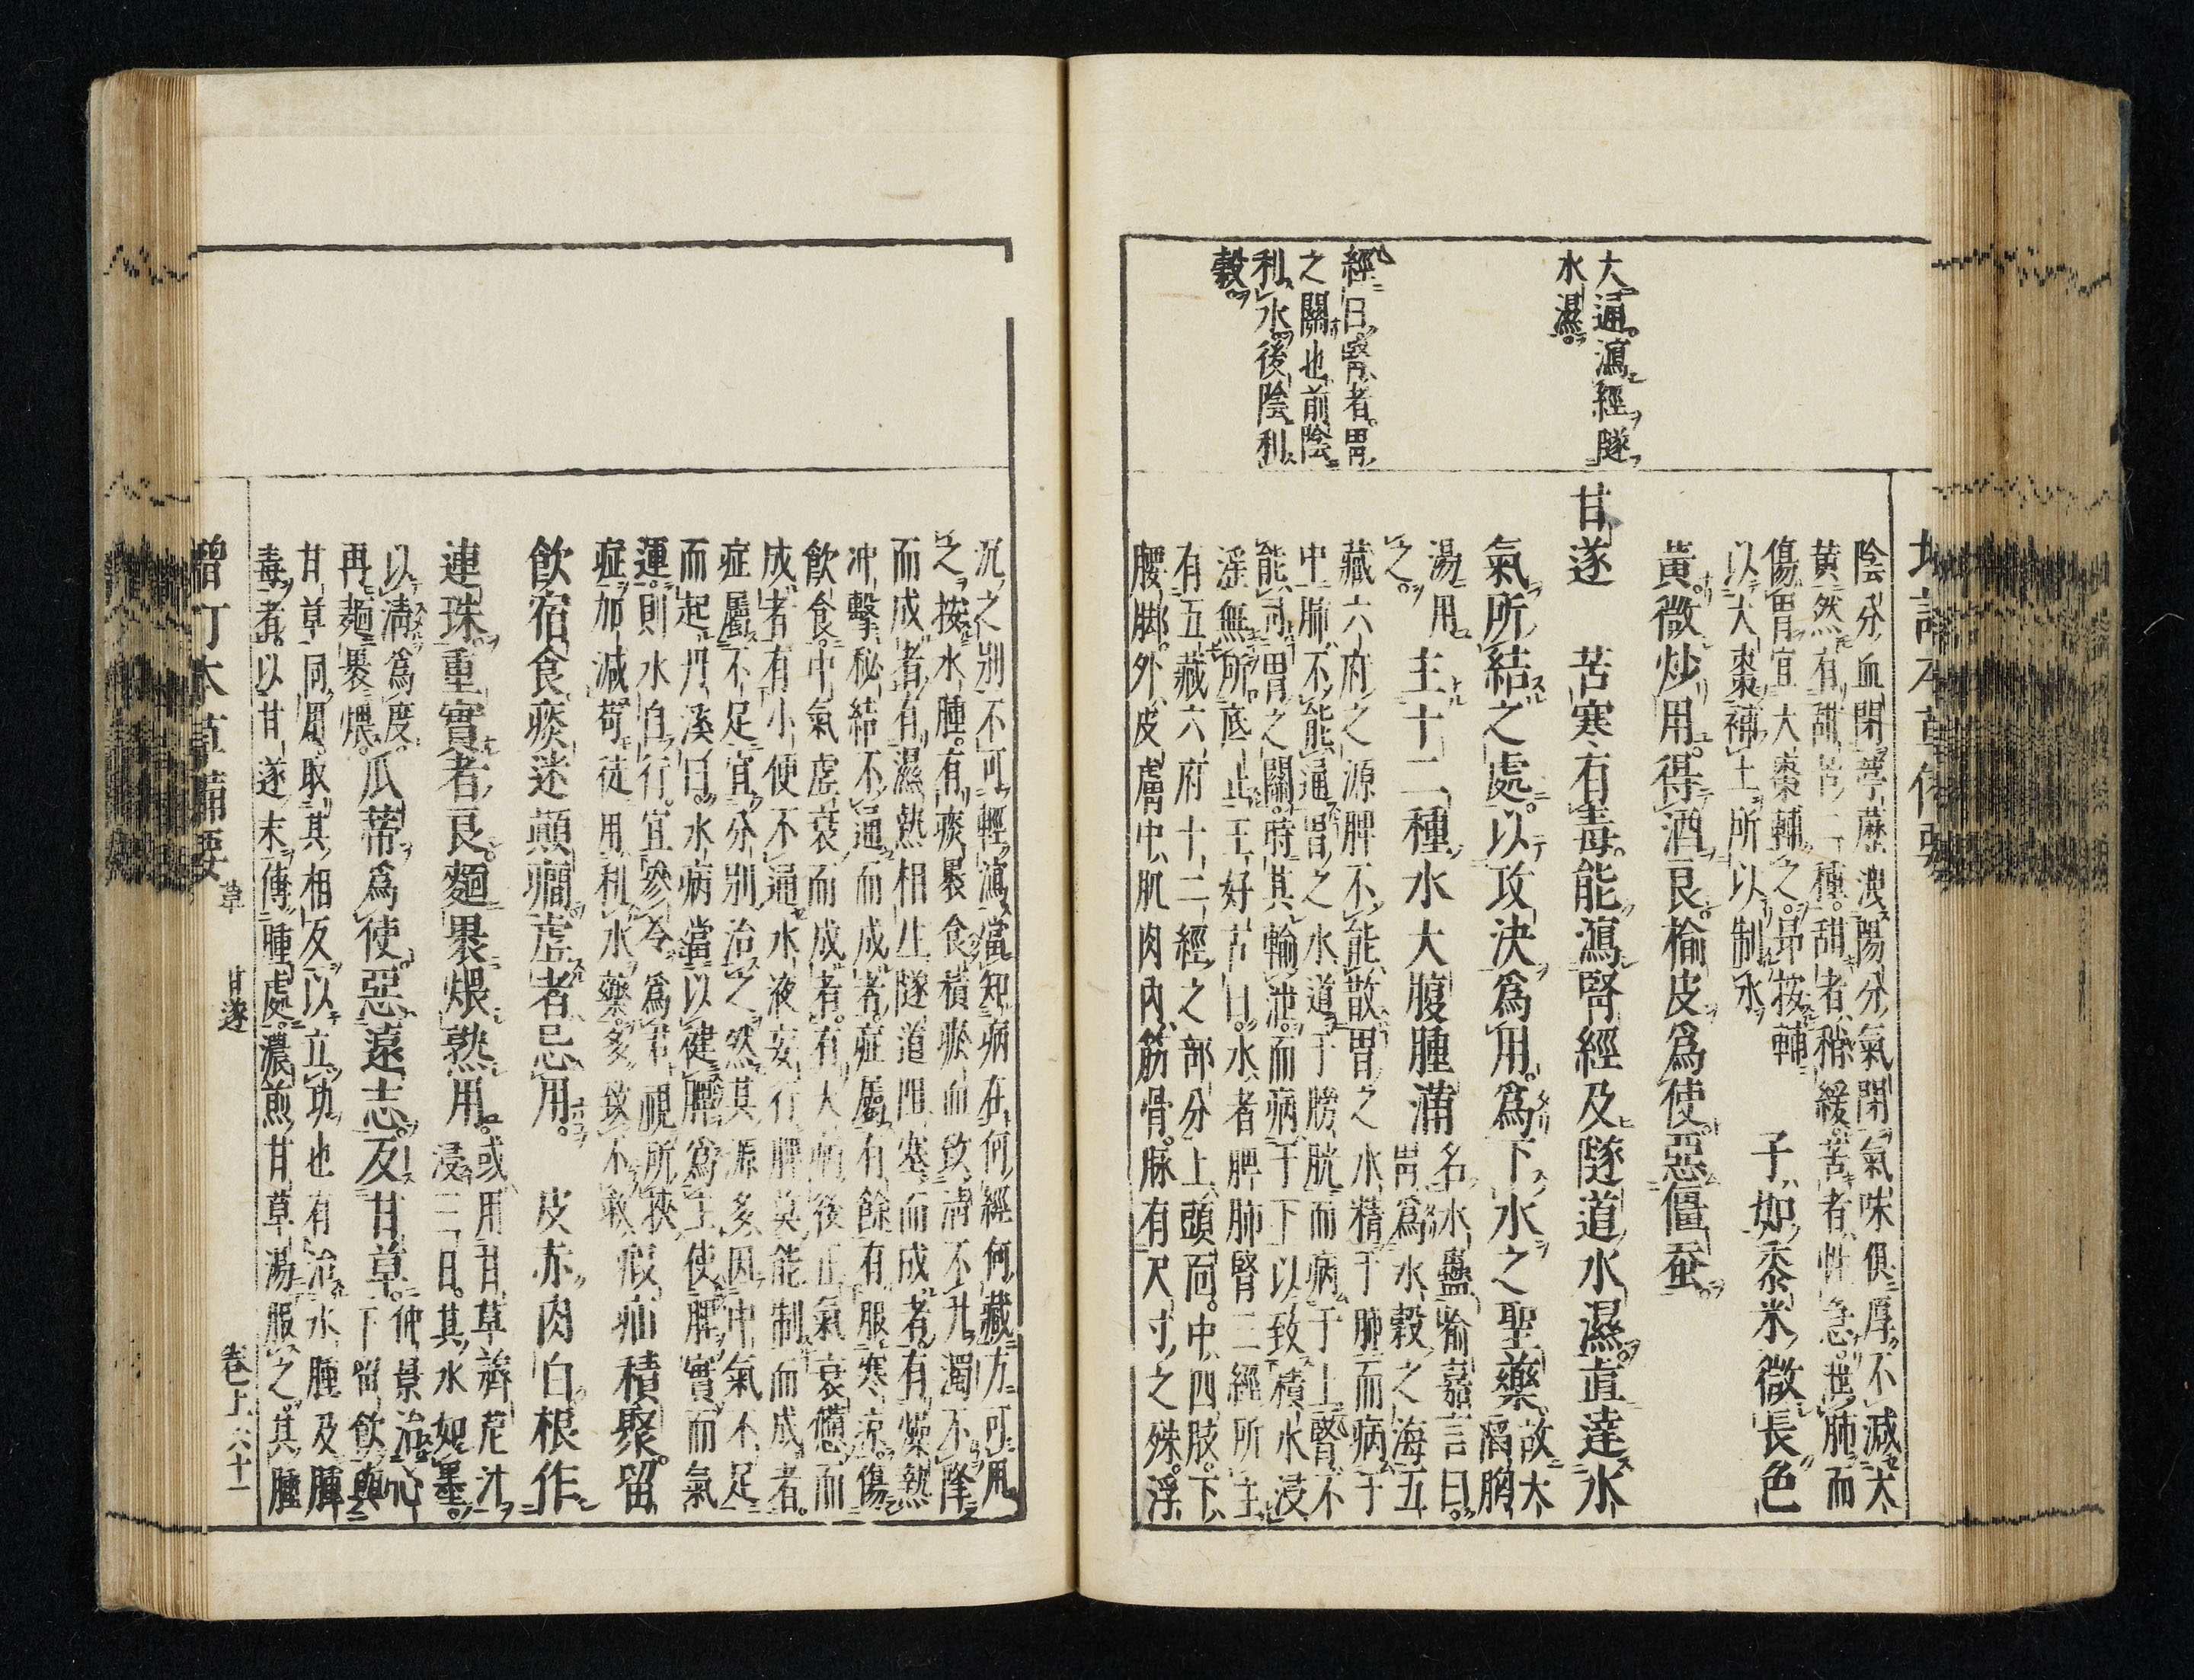 大通瀉經隧
水濕
經曰腎者胃
之關也前陰
利水後陰利
穀
陰分血閉葶藶洩陽分氣閉氣味俱厚不減大
黃然有甜苦二種甜者稍緩苦者性急泄肺而
傷胃宜大棗輔之昻按輔
以大棗補土所以制水
子如黍米微長色
黃微炒用得酒良榆皮爲使惡僵蚕
甘遂
苦寒有毒能瀉腎經及隧道水濕直達水
氣所結之處以攻決爲用爲下水之聖藥
故大
䧟胸
湯用
之
主十二種水大腹腫滿
名水蠱喻嘉言曰
胃爲水穀之海五
藏六府之源脾不能散胃之水精于肺而病于
中肺不能通胃之水道于膀胱而病于上腎不
能司胃之關時其輸泄而病于下以致積水浸
淫無所底止王好古曰水者脾肺腎三經所主
有五藏六府十二經之部分上頭面中四肢下
腰脚外皮膚中肌肉內筋骨脉有尺寸之殊浮
沉之別不可輕瀉當知病在何經何藏方可用
之按水腫有痰裹食積瘀血致清不升濁不降
而成者有濕熱相生隧道阻塞而成者有燥熱
冲擊秘結不通而成者症屬有餘有服寒凉傷
飲食中氣虛衰而成者有大病後正氣衰憊而
成者有小便不通水液妄行脾莫能制而成者
症屬不足宜分別治之然其源多因中氣不足
而起丹溪曰水病當以健脾爲主使脾實而氣
運則水自行宜參苓爲君視所挾
症加減苟徒用利水藥多致不救
瘕疝積聚留
飲宿食痰迷癲癇虛者忌用
皮赤肉白根作
連珠重實者良麵裹煨熟用
或用甘草薺苨汁
浸三日其水如墨
以清爲度
再麵裹煨
瓜蒂爲使惡遠志反甘草
仲景治心
下留飲與
甘草同用取其相反以立功也有治水腫及腫
毒者以甘遂末傅腫處濃煎甘草湯服之其腫
增訂本草備要
草
甘遂
卷上
六十一